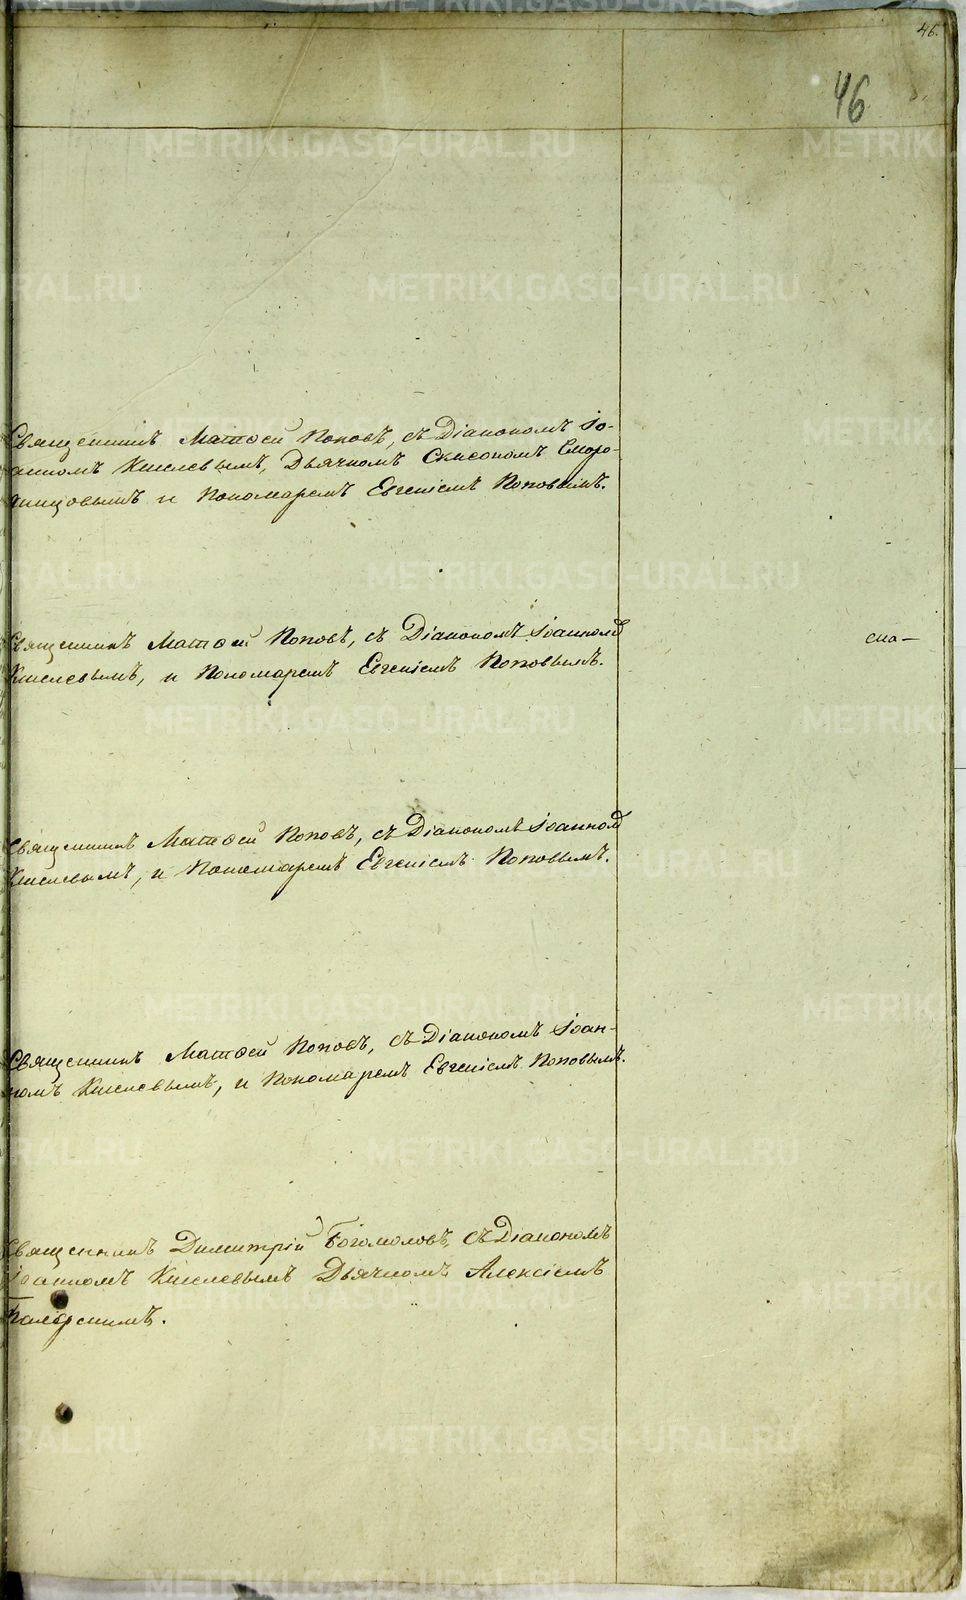 46.
46
Священникъ Матѳей Поповъ, съ Діакономъ Іо-
анномъ Киселевымъ, Дьячкомъ
и Пономаремъ Евгеніемъ Поповымъ.
Священникъ Матѳей Поповъ, съ Діакономъ Іоанномъ
Киселевымъ, и Пономаремъ Евгеніемъ Поповымъ.
Священникъ Матѳей Поповъ, съ Діакономъ Іоанномъ
Киселевымъ, и Пономаремъ Евгеніемъ Поповымъ.
Священникъ Матѳей Поповъ, съ Діакономъ Іоан-
номъ Киселевымъ, и Пономаремъ Евгеніемъ Поповымъ.
Священникъ Димитрій Богомоловъ, съ Діакономъ
Іоанномъ Киселевымъ Дьячкомъ Алексіемъ
METRIKI.GASO-URAL.RU